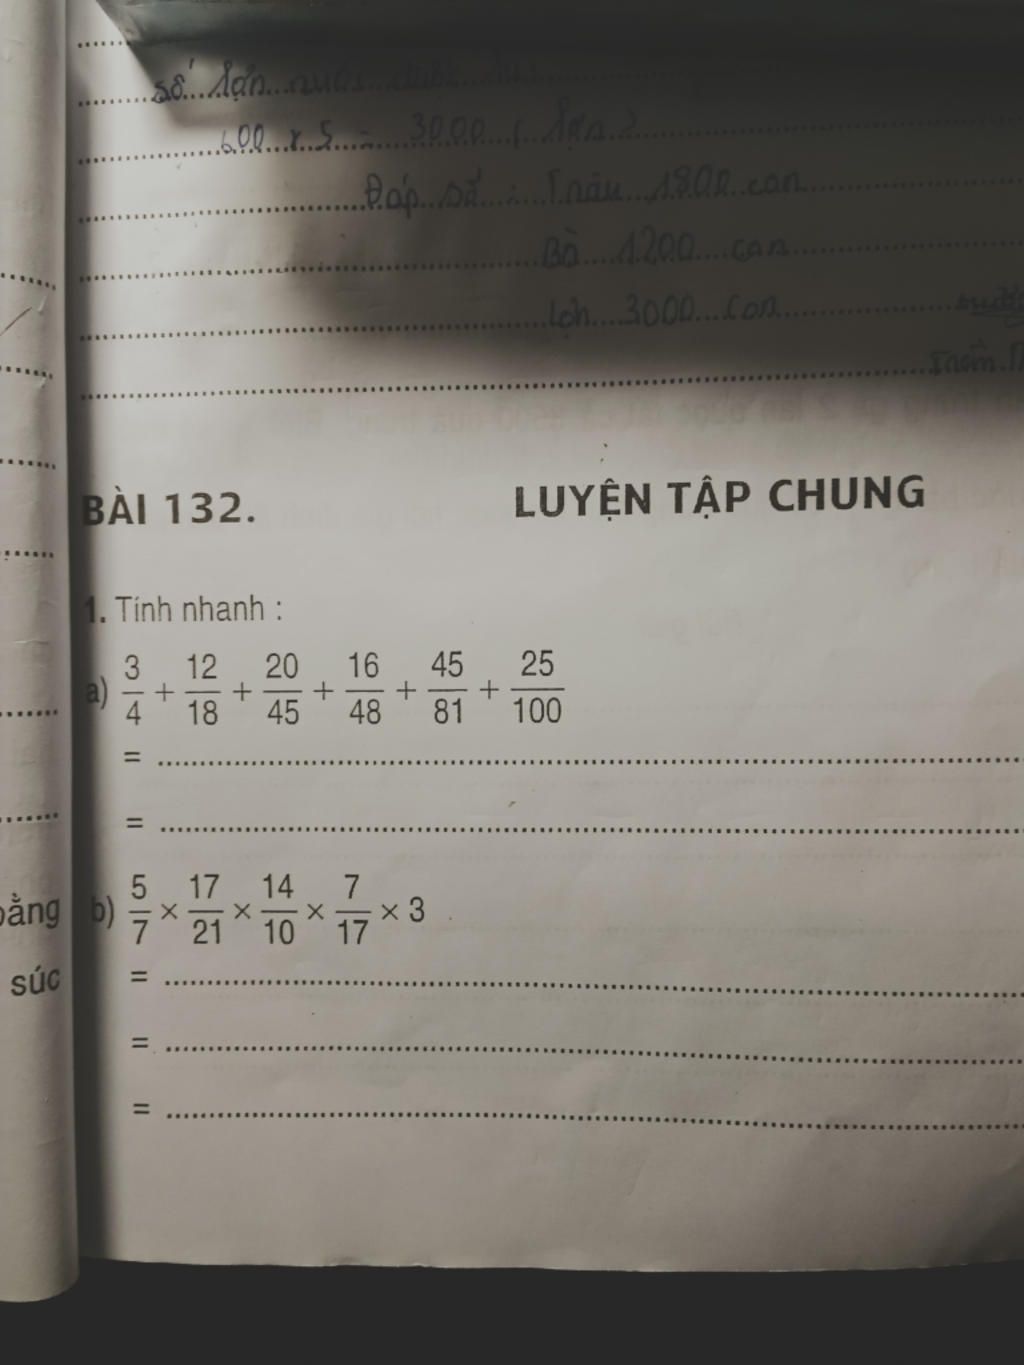 số lợn nuôi được là:
600 x 5 = 3000 (lợn)
Đáp số : Trâu 1800 con
Bò 1200 con
Lợn 3000 con
BÀI 132. LUYỆN TẬP CHUNG
1. Tính nhanh :
a) 3/4 + 12/18 + 20/45 + 16/48 + 45/81 + 25/100
= ....................
= ....................
b) 5/7 × 17/21 × 14/10 × 7/17 × 3
= ....................
= ....................
= ....................
bằng
súc